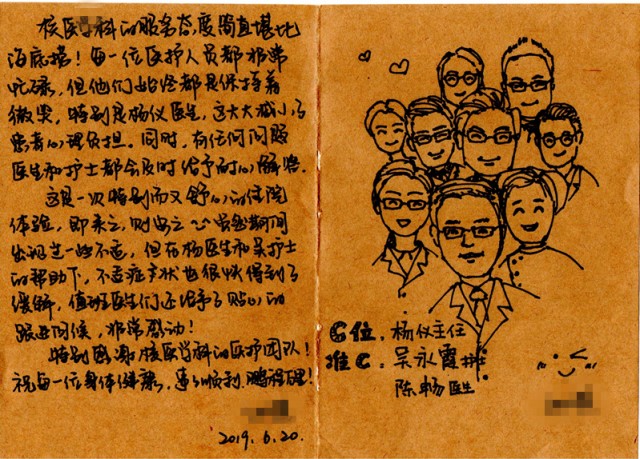 核医学科的服务态度简直堪比
海底捞！每一位医护人员都非常
忙碌，但他们始终都是保持着
微笑，特别是杨仪医生，这大大减小了
患者心理负担。同时，有任何问题
医生和护士都会及时给予耐心解答。
这是一次特别而又舒心的住院
体验，即来之，则安之 虽然期间
出现过一些不适，但在杨医生和吴护士
的帮助下，不适症状也很快得到了
缓解，值班医生们还给予了贴心的
跟进问候，非常感动！
特别感谢核医学科的医护团队！
祝每一位身体健康，事事顺利，鹏程万里！
2019.6.20.
C位：杨仪主任
准C：吴永霞护士
陈畅医生